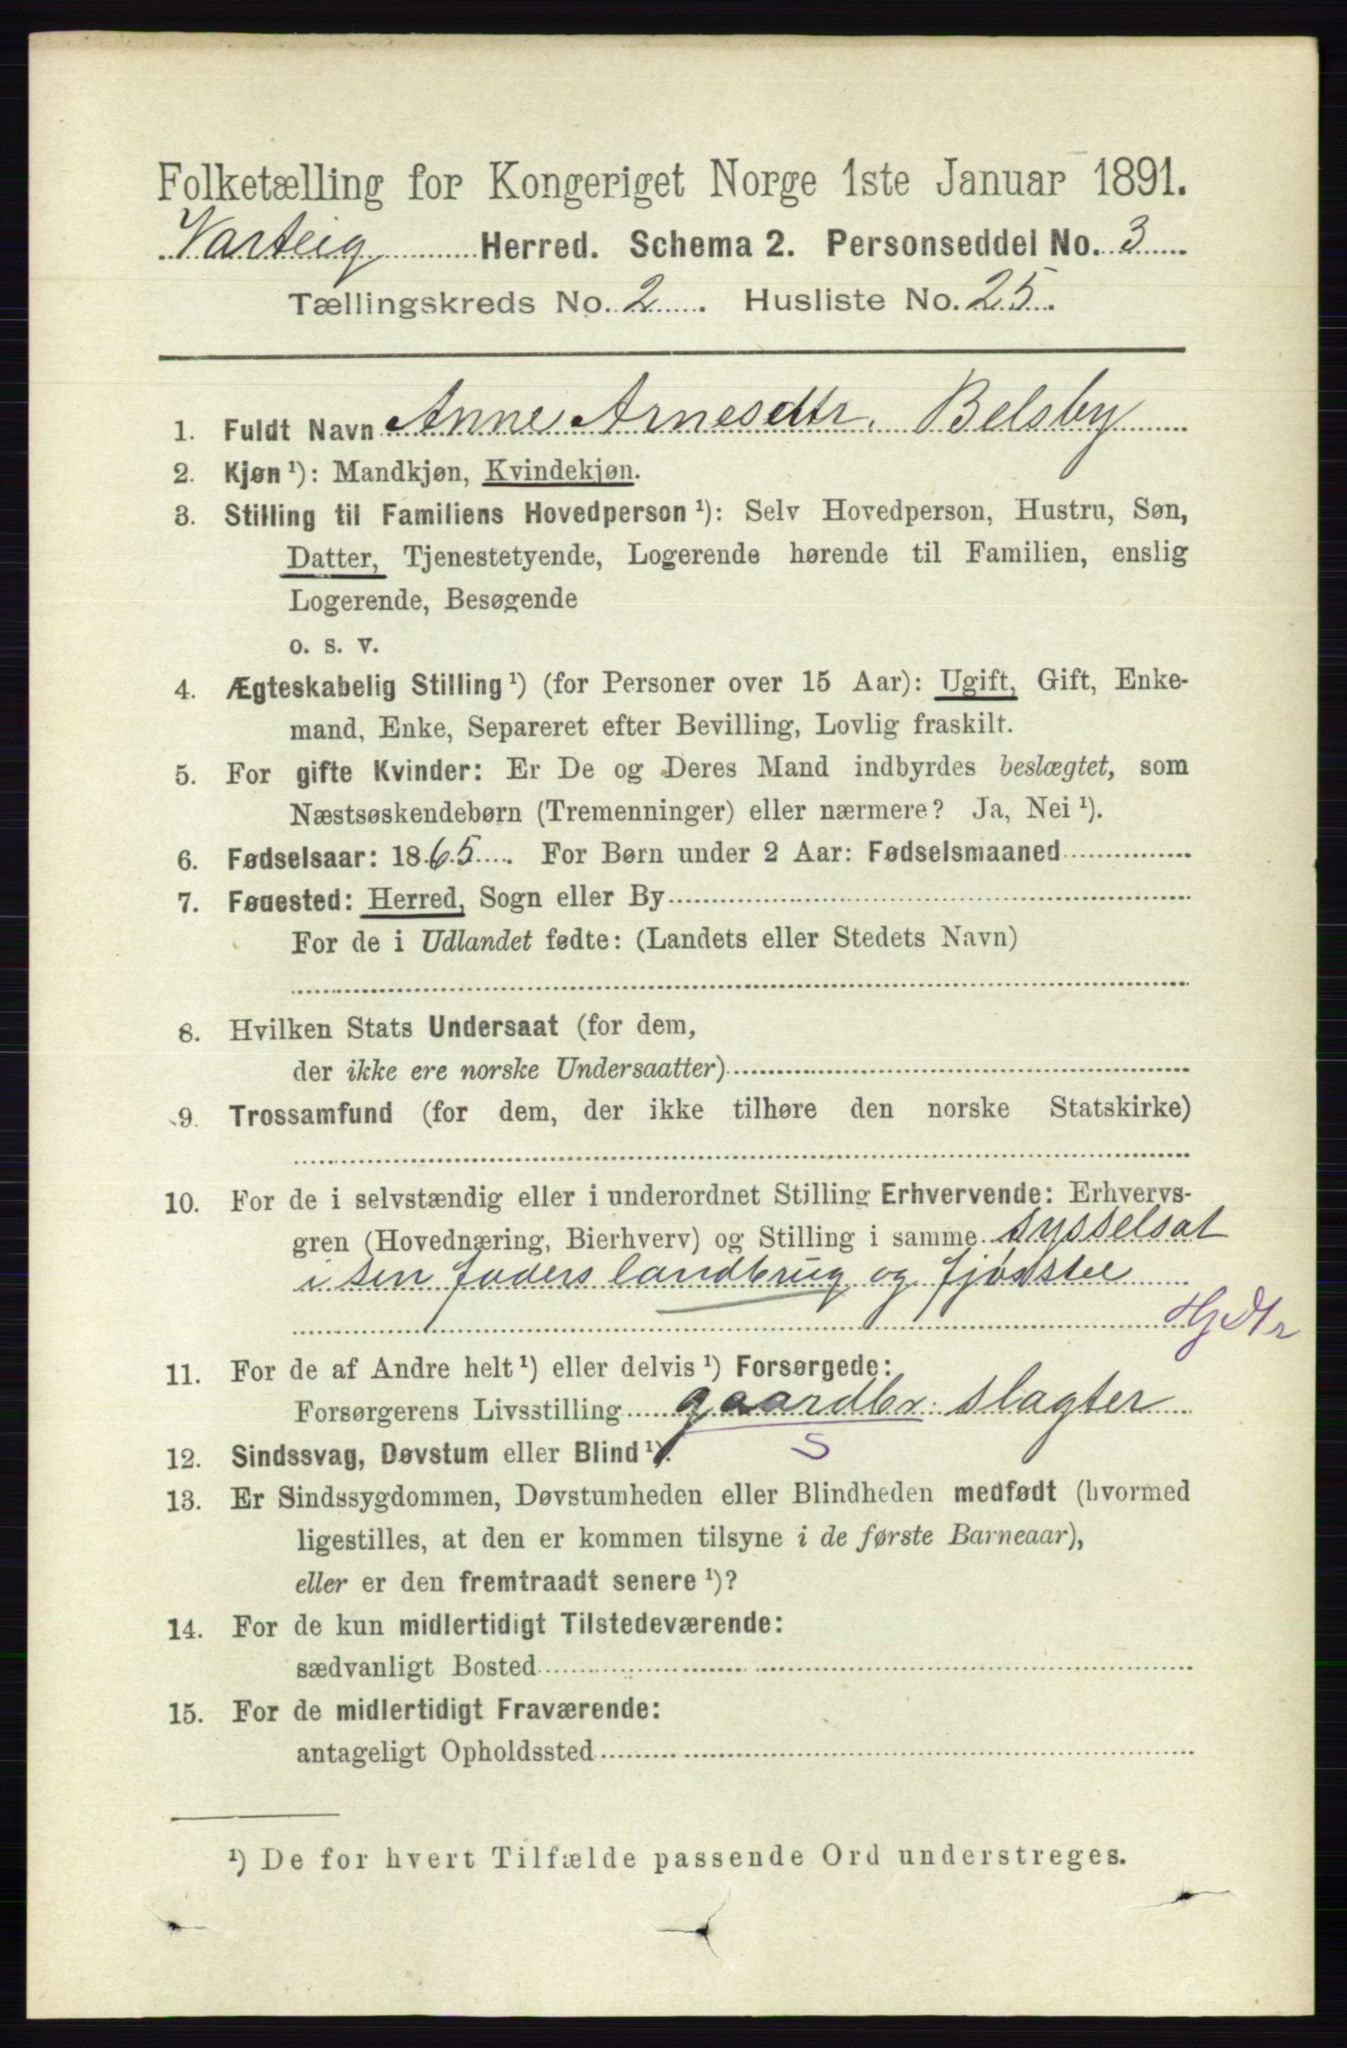 Folketælling for Kongeriget Norge 1ste Januar 1891.
Varteig Herred. Schema 2. Personseddel No. 3
Tællingskreds No. 2. Husliste No. 25.
1. Fuldt Navn Anne Arnesdtr. Belsby
2. Kjøn ¹): Mandkjøn, Kvindekjøn.
3. Stilling til Familiens Hovedperson ¹): Selv Hovedperson, Hustru, Søn,
Datter, Tjenestetyende, Logerende hørende til Familien, enslig
Logerende, Besøgende
o. s. v.
4. Ægteskabelig Stilling ¹) (for Personer over 15 Aar): Ugift, Gift, Enke-
mand, Enke, Separeret efter Bevilling, Lovlig fraskilt.
5. For gifte Kvinder: Er De og Deres Mand indbyrdes beslægtet, som
Næstsøskendebørn (Tremenninger) eller nærmere? Ja, Nei ¹).
6. Fødselsaar: 1865. For Børn under 2 Aar: Fødselsmaaned
7. Føuested: Herred, Sogn eller By
For de i Udlandet fødte: (Landets eller Stedets Navn)
8. Hvilken Stats Undersaat (for dem,
der ikke ere norske Undersaatter)
9. Trossamfund (for dem, der ikke tilhøre den norske Statskirke)
10. For de i selvstændig eller i underordnet Stilling Erhvervende: Erhvervs-
gren (Hovednæring, Bierhverv) og Stilling i samme sysselsat
i sin faders landbrug og fjøsstel
Hj Dtr
11. For de af Andre helt ¹) eller delvis ¹) Forsørgede:
Forsørgerens Livsstilling gaardbr. slagter
S
12. Sindssvag, Døvstum eller Blind ¹).
13. Er Sindssygdommen, Døvstumheden eller Blindheden medfødt (hvormed
ligestilles, at den er kommen tilsyne i de første Barneaar),
eller er den fremtraadt senere ¹)?
14. For de kun midlertidigt Tilstedeværende:
sædvanligt Bosted
15. For de midlertidigt Fraværende:
antageligt Opholdssted
¹) De for hvert Tilfælde passende Ord understreges.